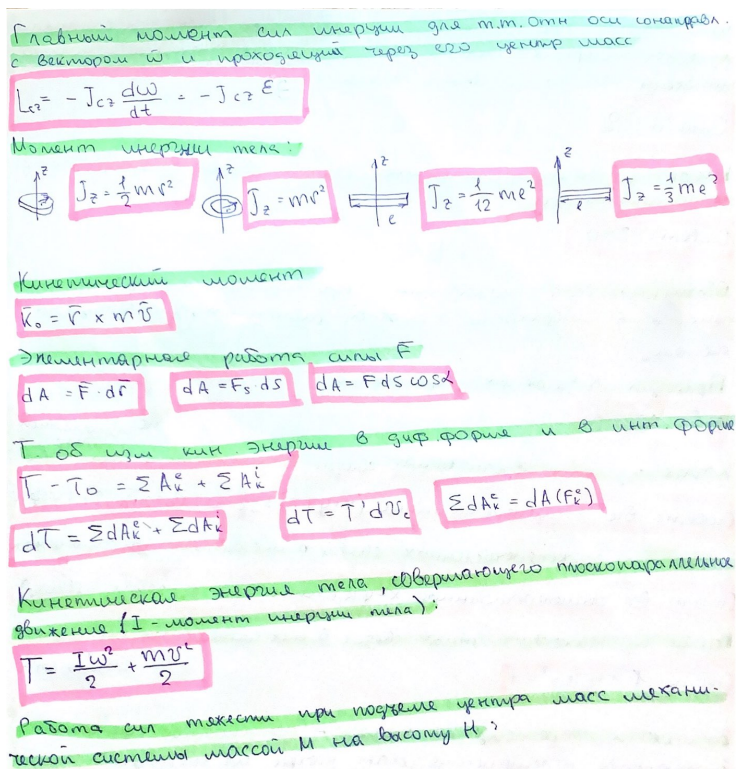 Главный момент сил инерции для т.т. отн оси сонаправл.
с вектором ω̄ и проходящий через его центр масс
Lᵢz = - Jcz dω/dt = - Jcz ε
Момент инерции тела:
z Jz = 1/2 mr² z Jz = mr² z l Jz = 1/12 ml² z l Jz = 1/3 ml²
Кинетический момент
K̄₀ = r̄ × m v̄
Элементарная работа силы F̄
dA = F̄ · dr̄ dA = Fs · ds dA = F ds cos α
Т. об изм кин. энергии в диф. форме и в инт. форме
T - T₀ = ΣAₖᵉ + ΣAₖⁱ
dT = ΣdAₖᵉ + ΣdAₖⁱ dT = T' dvc ΣdAₖᵉ = dA(Fₖᵉ)
Кинетическая энергия тела, совершающего плоскопараллельное
движение (I - момент инерции тела):
T = Iω²/2 + mv²/2
Работа сил тяжести при подъеме центра масс механи-
ческой системы массой M на высоту H: